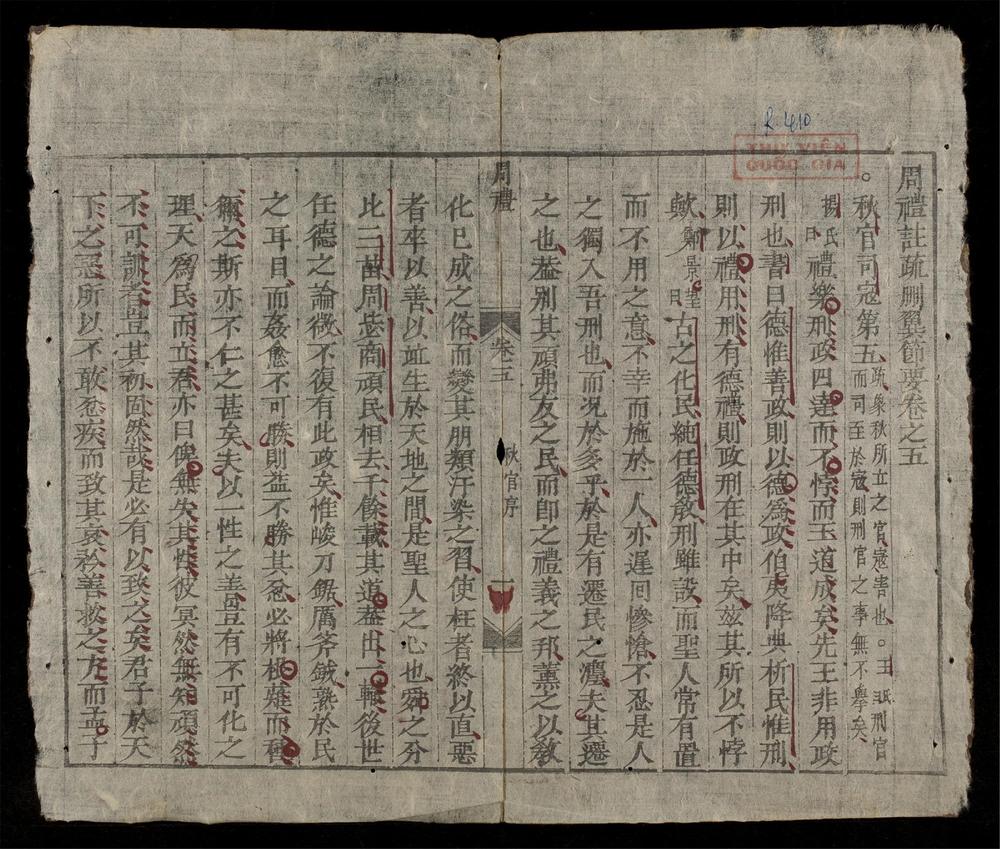 R 410
THƯ VIỆN
QUỐC GIA
周禮註疏刪翼節要卷之五
。秋官司寇第五疏象秋所立之官寇害也。王氏刑官
而司至於寇則刑官之事無不舉矣
楊氏曰禮樂刑政四達而不悖而王道成矣先王非用政
刑也書曰德惟善政則以德為政伯夷降典析民惟刑
則以禮用刑有德禮則政刑在其中矣茲其所以不悖
歟鄭景望曰古之化民純任德教刑雖設而聖人常有置
而不用之意不幸而施於一人亦遲回慘愴不忍是人
之獨入吾刑也而況於多乎於是有遷民之灋夫其遷
之也葢別其頑弗友之民而即之禮義之邦薰之以教
周禮
卷五
秋官序
一
化已成之俗而變其朋類汙染之習使枉者終以直惡
者卒以善以竝生於天地之間是聖人之心也舜之分
比三苗周毖商頑民相去千餘載其道葢出一轍後世
任德之論微不復有此政矣惟峻刀鋸厲斧鉞熟於民
之耳目而姦愈不可勝則益不勝其忿必將根薙而
爾之斯亦不仁之甚矣夫以一性之善豈有不可化之
理天為民而立君亦曰俾無失其性彼冥然無知頑然
不可訓者豈其初固然哉是必有以致之矣君子於天
下之惡所以不敢忿疾而致其哀矜善救之方而孟子